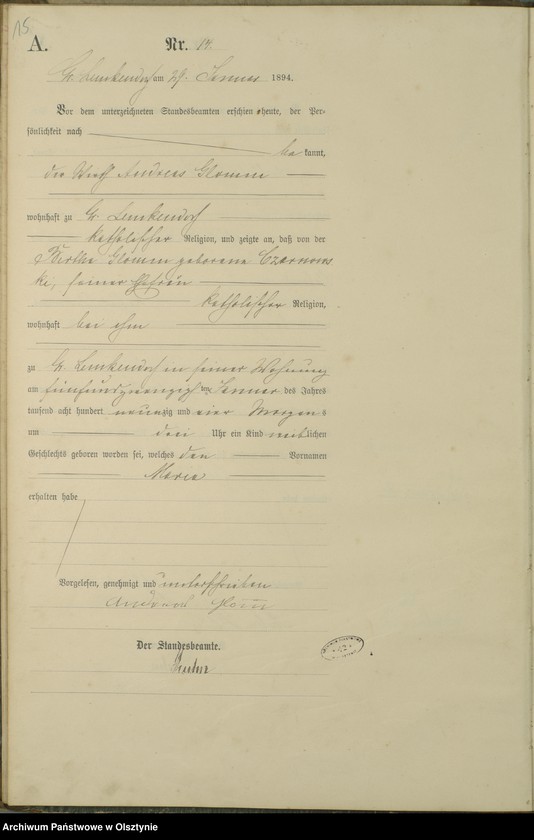 15
A. Nr. 14.
Gr. Lemkendorf am 29. Januar 1894.
Vor dem unterzeichneten Standesbeamten erschien heute, der Per-
sönlichkeit nach
be kannt,
der Wirth Andreas Glomm
wohnhaft zu Gr. Lemkendorf
katholischer Religion, und zeigte an, daß von der
Bertha Glomm geborene Czarnows
ki, seiner Ehefrau
katholischer Religion,
wohnhaft bei ihm
zu Gr. Lemkendorf in seiner Wohnung
am fünfundzwanzigsten Januar des Jahres
tausend acht hundert neunzig und vier Morgens
um drei Uhr ein Kind weiblichen
Geschlechts geboren worden sei, welches den Vornamen
Maria
erhalten habe
Vorgelesen, genehmigt und unterschrieben
Andreas Glomm
Der Standesbeamte.
Archiwum Państwowe w Olsztynie